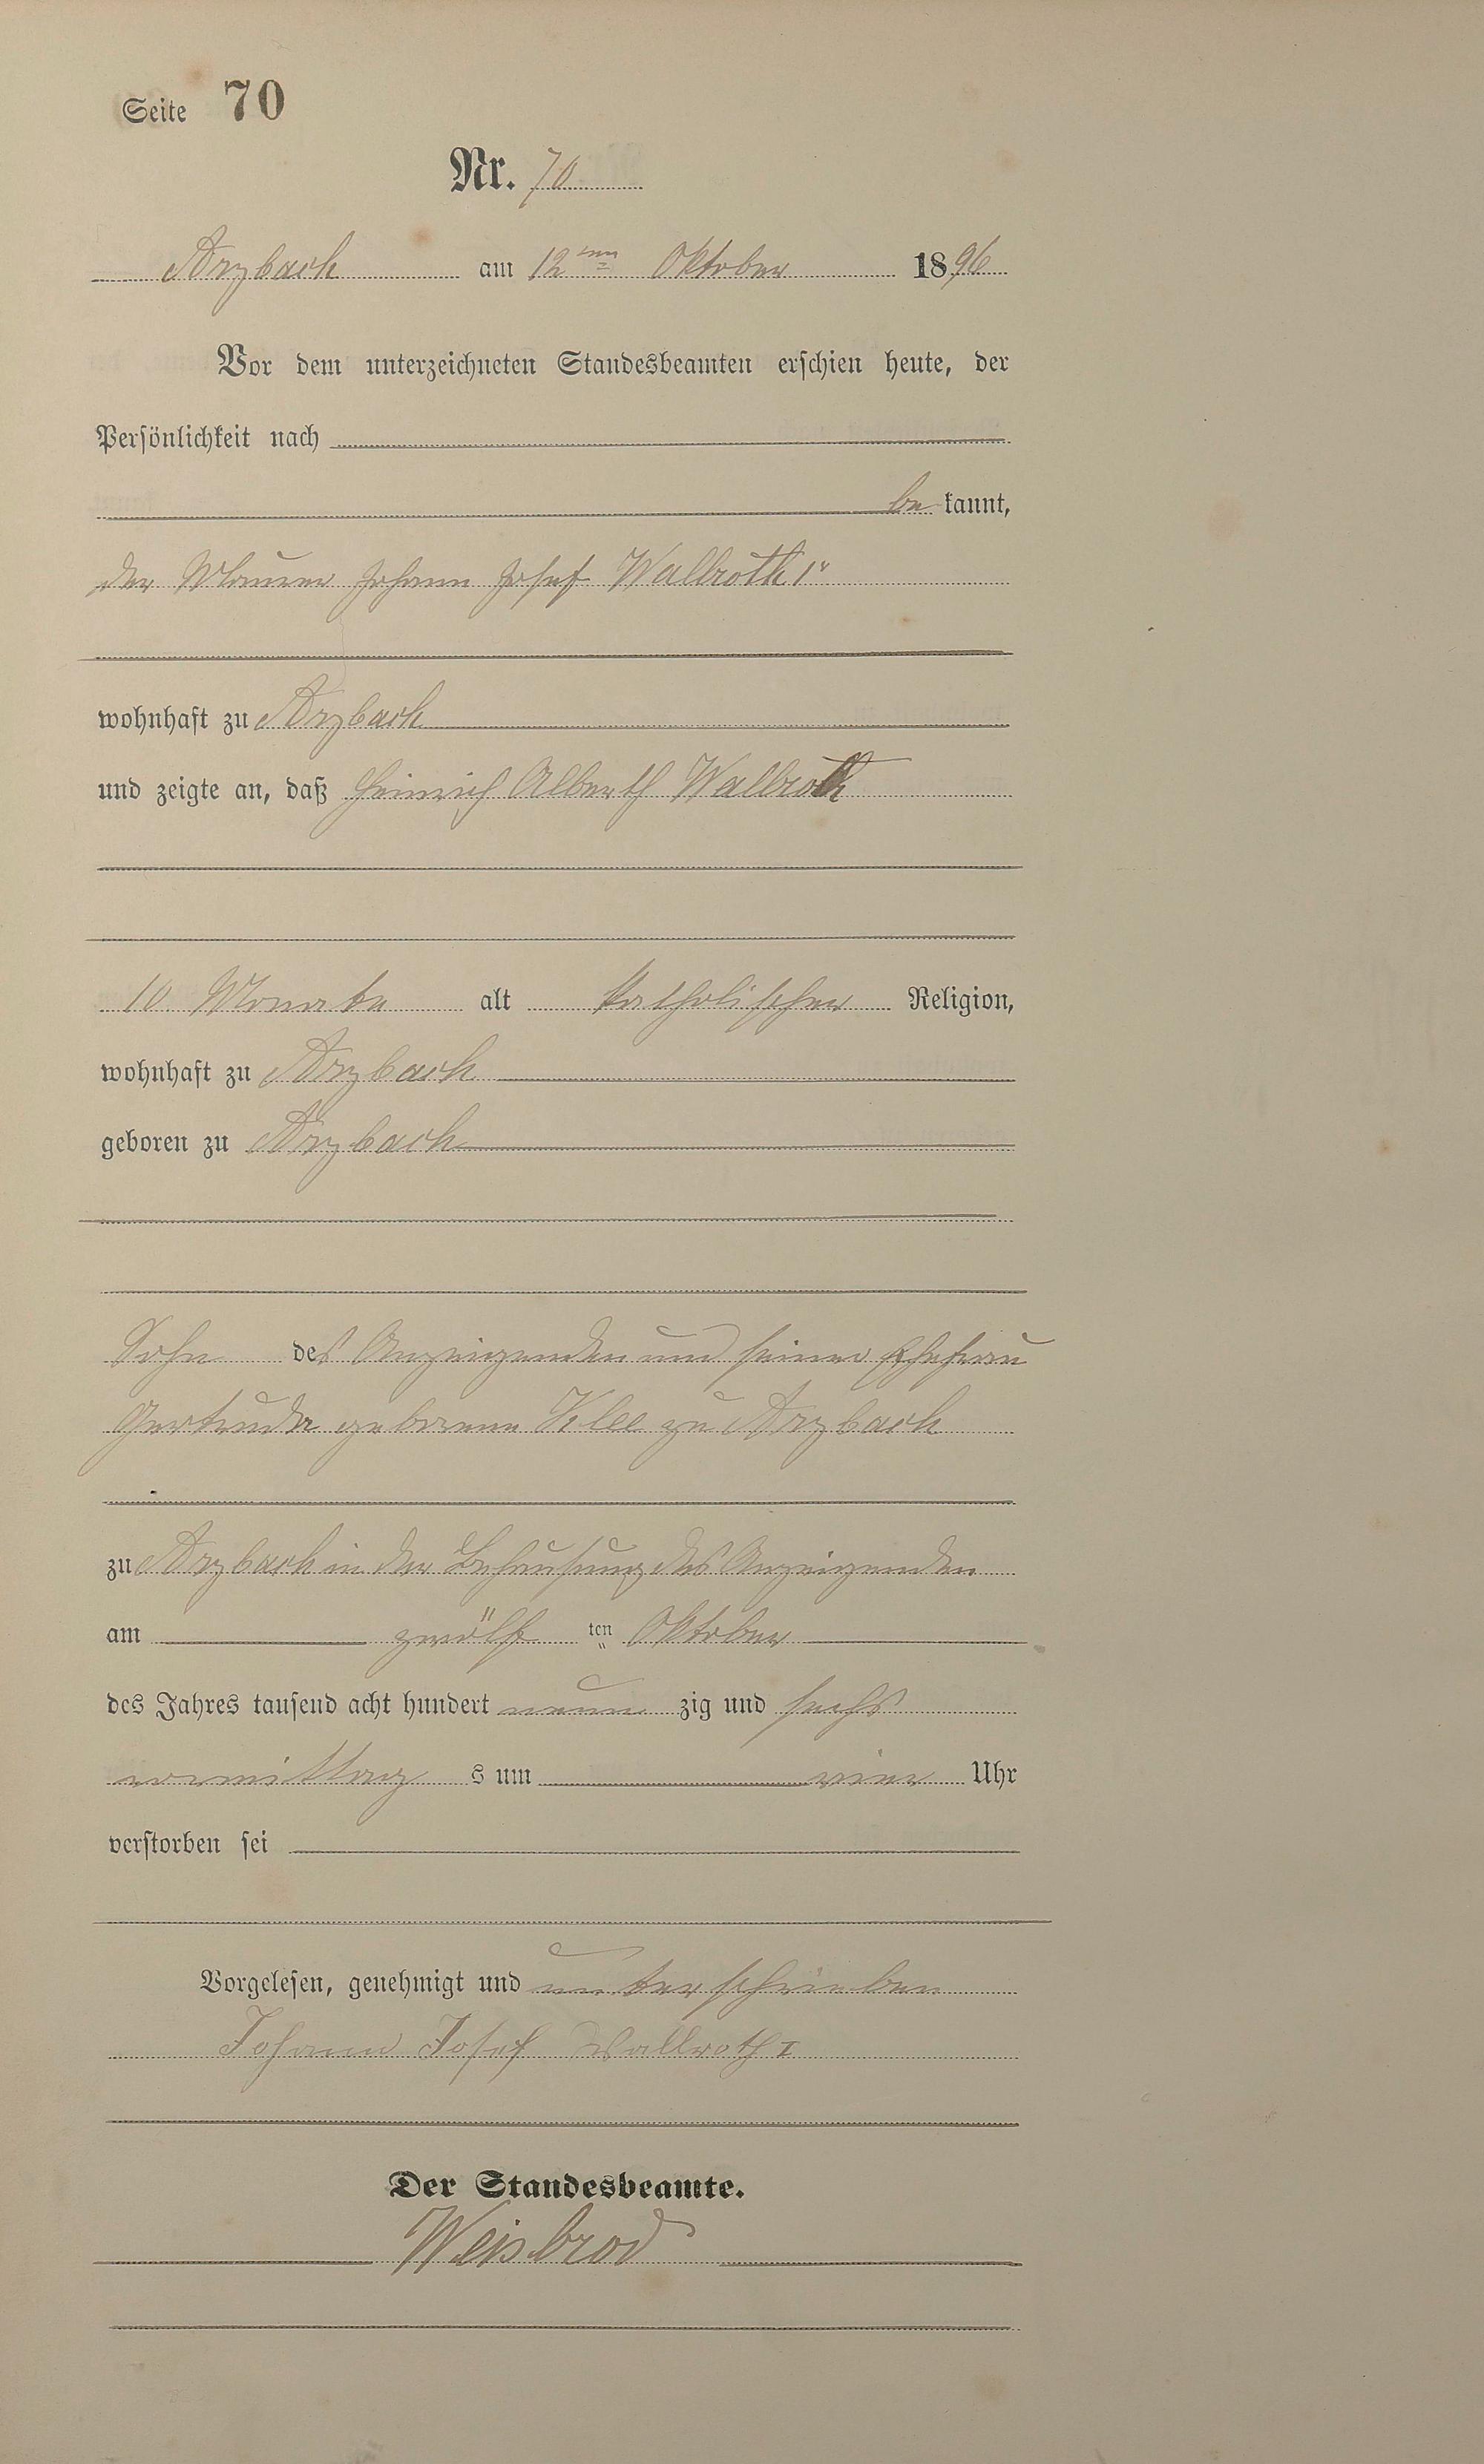 Seite 70
Nr. 70
Arzbach am 12ten Oktober 1896
Vor dem unterzeichneten Standesbeamten erschien heute, der
Persönlichkeit nach
be kannt,
der Maurer Johann Josef Wallroth 1r
wohnhaft zu Arzbach
und zeigte an, daß Heinrich Alberth Wallroth
10 Monate alt katholischer Religion,
wohnhaft zu Arzbach
geboren zu Arzbach
Sohn des Anzeigenden und seiner Ehefrau
Gertrude geborene Klee zu Arzbach
zu Arzbach in der Behausung des Anzeigenden
am zwölf ten Oktober
des Jahres tausend acht hundert neun zig und sechs
vormittag s um vier Uhr
verstorben sei
Vorgelesen, genehmigt und unterschrieben
Johann Josef Wallroth I
Der Standesbeamte.
Weisbrod